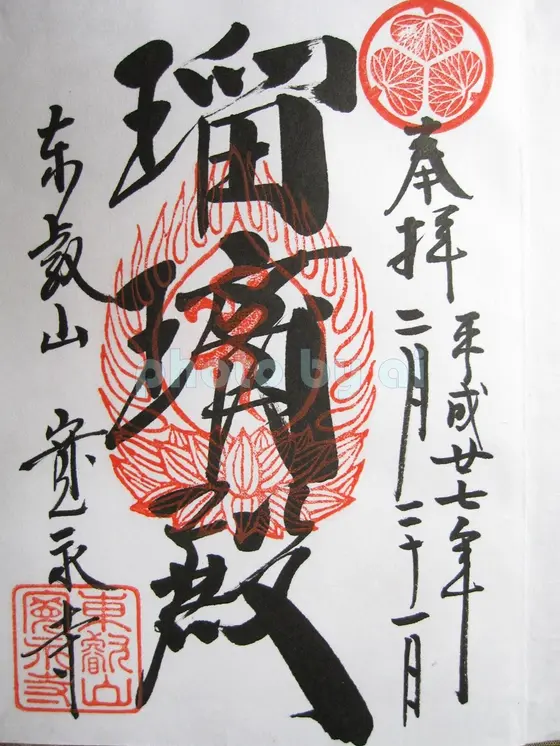 奉拝
平成廿七年
二月二十一日
瑠璃殿
東叡山 寛永寺
東叡山
寛永寺
photo by ai